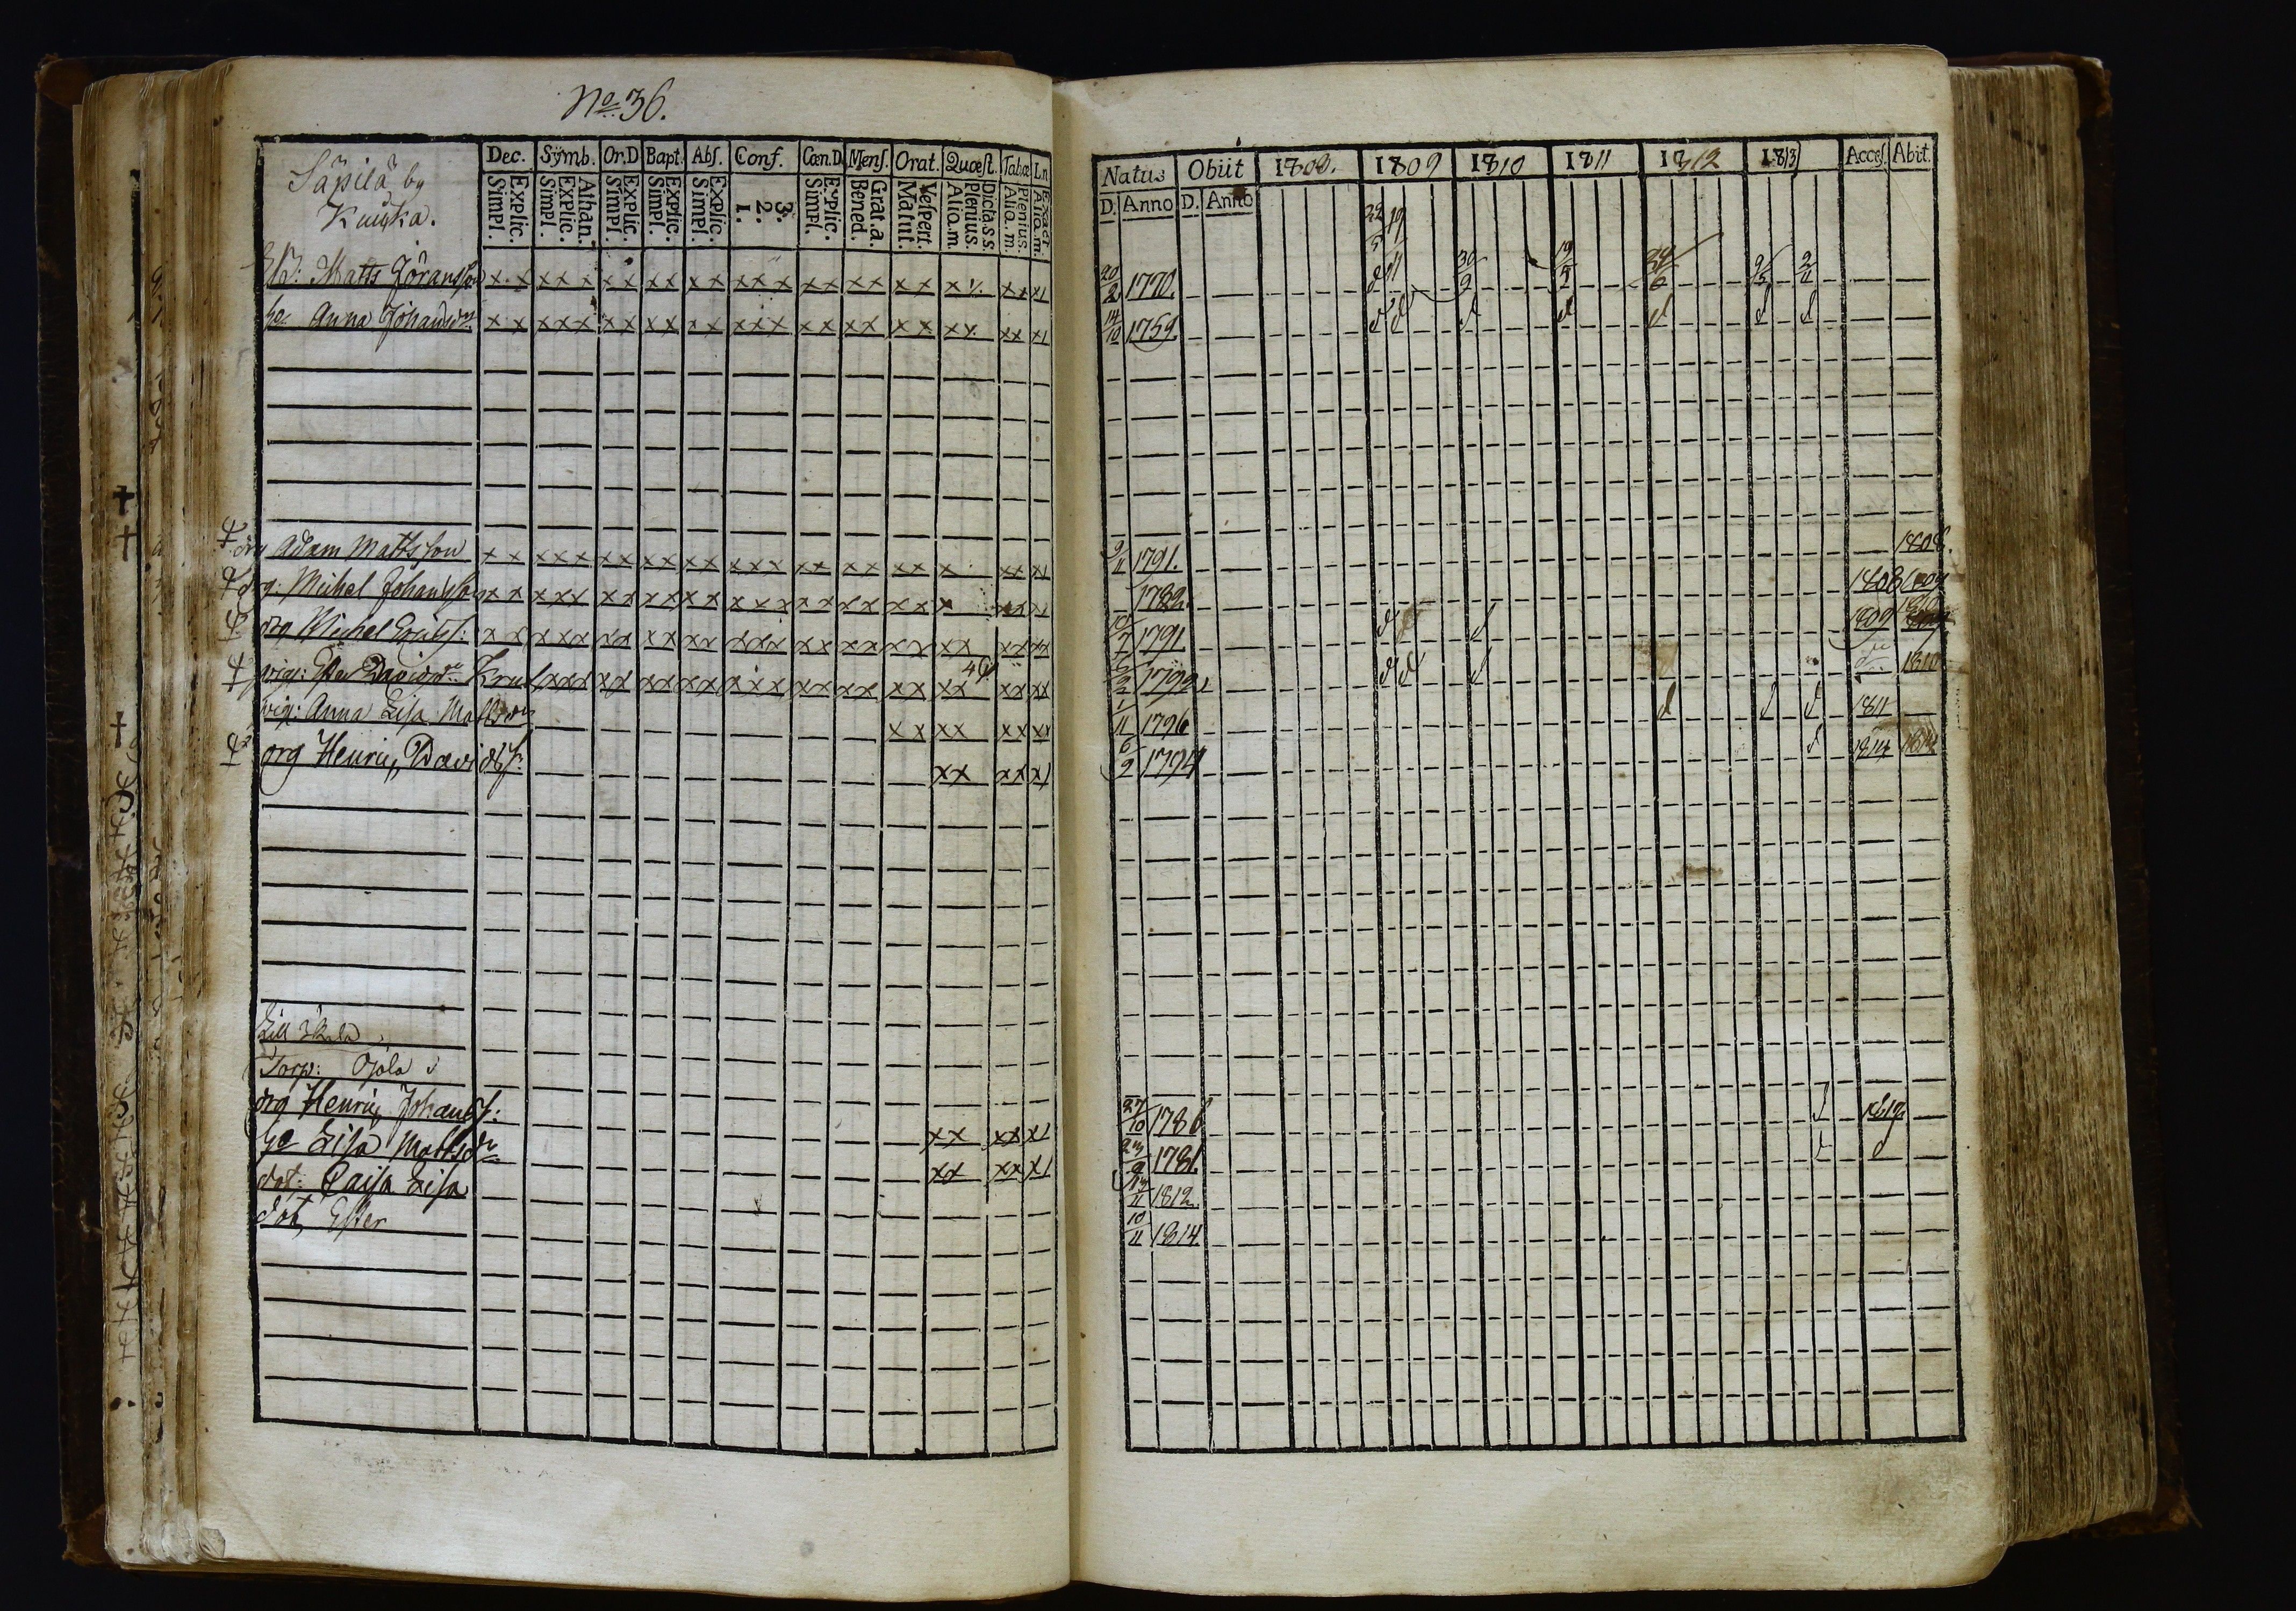 No 36.
Säpilä by
Kuuska.
Dec. Sÿmb. Or.D Bapt. Abſ. Conf. Cœn.D Menſ. Orat. Quœſt. Tabœ Ln
Simpl. Explic. Simpl. Explic. Athan. Simpl. Explic. Simpl. Explic. Simpl. Explic. 1. 2. 3. Simpl. Explic. Bened. Grat.a. Matut. Veſpert. Alio.m. Plenius. Dicta.s.s. Alio.m. Plenius. Alio.m. Exact
Natus Obiit 1808. 1809 1810 1811 1812 1813 Acceſ. Abit.
D. Anno D. Anno
Matts Göransson x x x x x x x x x x x x x x x x x x x x x x x x x 20/2 1770. 30/9 19/5 24/6 9/5 2/11
Anna Johansdr x x x x x x x x x x x x x x x x x x x x x x x x x 14/10 1759. d d d d d d d
drg Adam Mattsson x x x x x x x x x x x x x x x x x x x x x x x x 9/11 1791. 1808.
drg: Michel Johansson x x x x x x x x x x x x x x x x x x x x x x x x 1789. 1808 1809
drg Michel x x x x x x x x x x x x x x x x x x x x x x x x x 1791. d d 1809 1810
pig: Davidsdr x x x x x x x x x x x x x x x x x x x x x x x d d d 1810
pig: Anna Lisa Mattsdr x x x x x x x x 1/11 1796 d d d 1811
drg Henric Davidss: x x x x x 6/9 1794 d 1814
Torp: Ojala
drg Henric Johanss: x x x x x 27/10 1786 d 1812
Lisa Mattsdr x x x x x 1781. d d
dot: Caisa Lisa 1812.
dot, Ester 10/11 1814